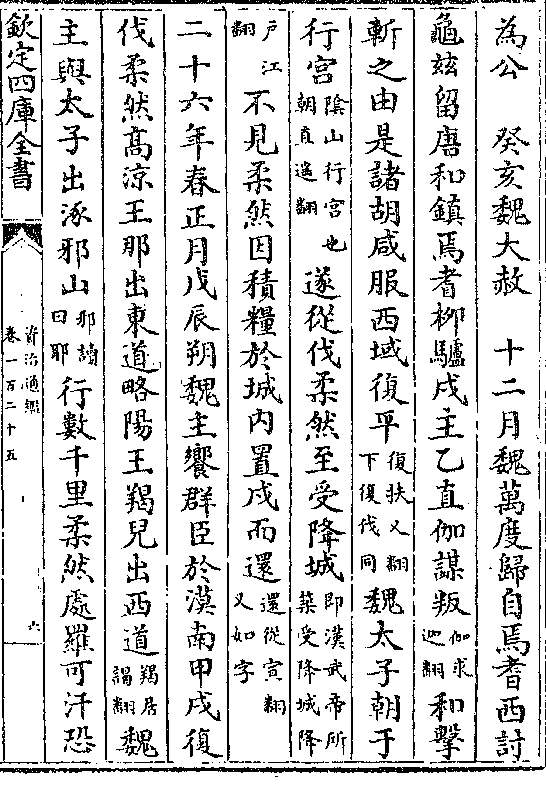 為公　癸亥魏大赦　十二月魏萬度歸自焉耆西討
龜兹留唐和鎮焉耆栁驢戍主乙直伽謀叛伽求迦翻和擊
斬之由是諸胡咸服西域復平復扶又翻下復伐同魏太子朝于
行宮隂山行宮也朝直遥翻遂從伐柔然至受降城即漢武帝所築受降城降
戶江翻不見柔然因積糧於城内置戍而還還從宣翻又如字
二十六年春正月戊辰朔魏主饗群臣於漠南甲戌復
伐柔然髙涼王那出東道略陽王羯兒出西道羯居謁翻魏
主與太子出涿邪山邪讀曰耶行數千里柔然處羅可汗恐
欽定四庫全書
資治通鑑
卷一百二十五
六